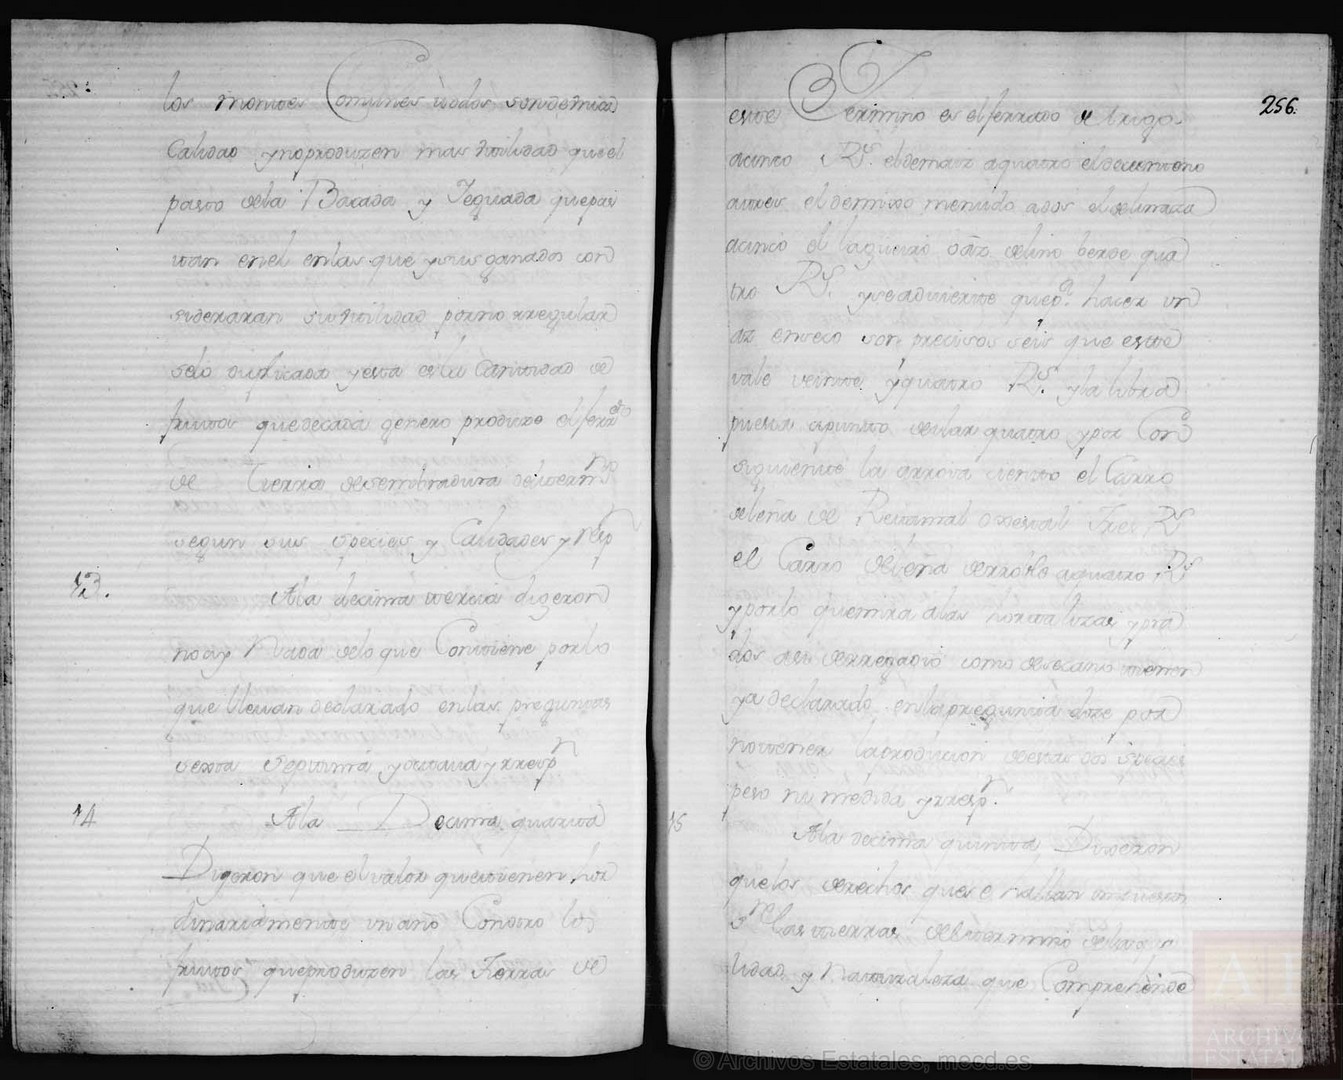 los montes Comunes todos son de mica
Calidad y no produzen mas utilidad que el
pasto de la Bacada y Yeguada que pas
tan en el en las que y sus ganados con
sideraran su utilidad por no rregular
selo duplicada y esta es la Cantidad de
frutos que de cada genero produze el ferr.do
de tierra de sembradura del term.no
segun sus especies y Calidades y resp
13. A la decima tercia digeron
no ay Nada de lo que Contiene por lo
que llevan declarado en las preguntas
sexta septima y octava y rresp.n
14 A la Decima quarta
Digeron que el valor que tienen hor
dinariamente un año Con otro los
frutos que produzen las tierras de
256.
este Termino es el ferrado de trigo
a cinco R.s el de maiz a quatro el de centeno
a tres el de mixo menudo a dos el de linaza
a cinco el de lino berde qua
tro R.s y se advierte que p.a hacer un
az en seco son precisos seis que este
vale veinte y quatro R.s y la libra
puesta a punto de ilar quatro y por Con
siguiente la arrova ciento el Carro
de leña de Retamal o tres R.s
el Carro de leña de rroble a quatro R.s
y por lo que mira a las hortalizas y pra
dos asi de rregadio como de secano tienen
ya declarado en la pregunta doze por
no tener la produccion de estas dos especies
peso ni medida y rresp.n
15 A la decima quinta Dixeron
que los derechos que se hallan impuestos
s.re las tierras del termino de la qua
lidad y Naturaleza que Comprehende
© Archivos Estatales, mecd.es
ARCHIVOS
ESTATALES